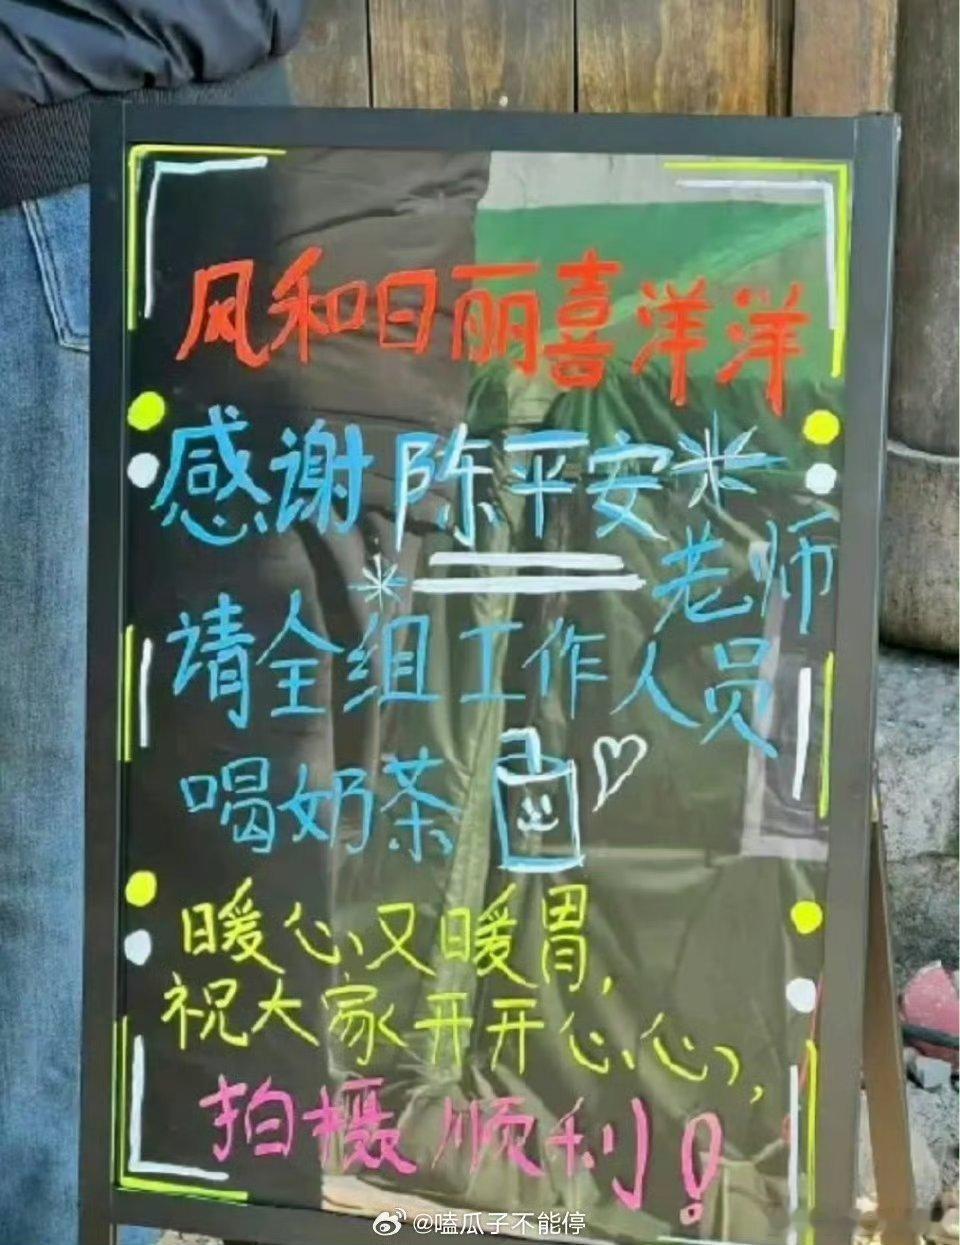 风和日丽喜洋洋
感谢陈平安
老师
请全组工作人员
喝奶茶
暖心又暖胃,
祝大家开开心心,
拍摄顺利!
@嗑瓜子不能停